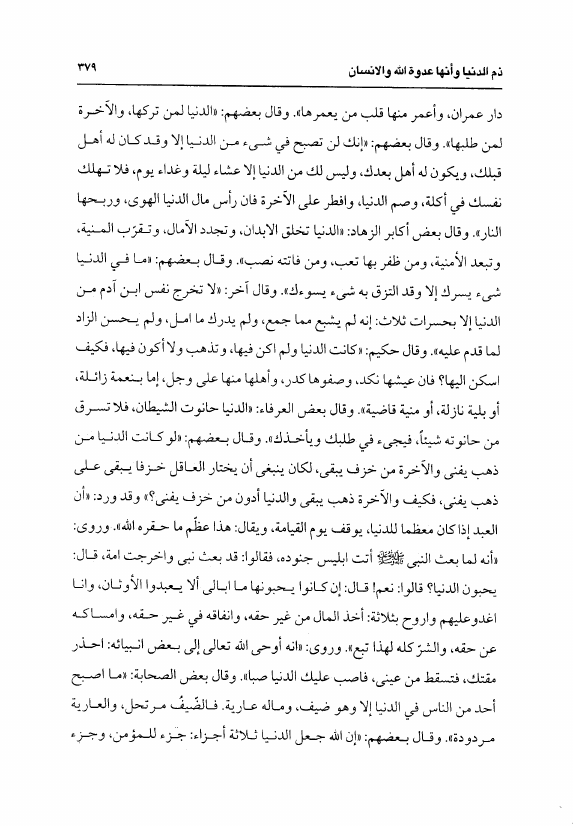 ذم الدنيا وأنها عدوة الله والانسان ٣٧٩
دار عمران، وأعمر منها قلب من يعمرها». وقال بعضهم: «الدنيا لمن تركها، والآخرة
لمن طلبها». وقال بعضهم: «إنك لن تصبح في شيء من الدنيا إلا وقد كان له أهل
قبلك، ويكون له أهل بعدك، وليس لك من الدنيا إلا عشاء ليلة وغداء يوم، فلا تهلك
نفسك في أكلة، وصم الدنيا، وافطر على الآخرة فان رأس مال الدنيا الهوى، وربحها
النار». وقال بعض أكابر الزهاد: «الدنيا تخلق الابدان، وتجدد الآمال، وتقرّب المنية،
وتبعد الأمنية، ومن ظفر بها تعب، ومن فاتته نصب». وقال بعضهم: «ما في الدنيا
شيء يسرك إلا وقد التزق به شيء يسوءك». وقال آخر: «لا تخرج نفس ابن آدم من
الدنيا إلا بحسرات ثلاث: إنه لم يشبع مما جمع، ولم يدرك ما امل، ولم يحسن الزاد
لما قدم عليه». وقال حكيم: «كانت الدنيا ولم اكن فيها، وتذهب ولا أكون فيها، فكيف
اسكن اليها؟ فان عيشها نكد، وصفوها كدر، وأهلها منها على وجل، إما بنعمة زائلة،
أو بلية نازلة، أو منية قاضية». وقال بعض العرفاء: «الدنيا حانوت الشيطان، فلا تسرق
من حانوته شيئاً، فيجيء في طلبك ويأخذك». وقال بعضهم: «لو كانت الدنيا من
ذهب يفنى والآخرة من خزف يبقى، لكان ينبغي أن يختار العاقل خزفا يبقى على
ذهب يفنى، فكيف والآخرة ذهب يبقى والدنيا أدون من خزف يفنى؟» وقد ورد: «أن
العبد إذا كان معظما للدنيا، يوقف يوم القيامة، ويقال: هذا عظّم ما حقره الله». وروى:
«أنه لما بعث النبي ﷺ أتت ابليس جنوده، فقالوا: قد بعث نبي واخرجت امة، قال:
يحبون الدنيا؟ قالوا: نعم! قال: إن كانوا يحبونها ما ابالى ألا يعبدوا الأوثان، وانا
اغدو عليهم واروح بثلاثة: أخذ المال من غير حقه، وانفاقه في غير حقه، وامساكه
عن حقه، والشرّ كله لهذا تبع». وروى: «انه أوحى الله تعالى إلى بعض انبيائه: احذر
مقتك، فتسقط من عينى، فاصب عليك الدنيا صبا». وقال بعض الصحابة: «ما اصبح
أحد من الناس في الدنيا إلا وهو ضيف، وماله عارية. فالضّيفُ مرتحل، والعارية
مردودة». وقال بعضهم: «إن الله جعل الدنيا ثلاثة أجزاء: جزء للمؤمن، وجزء